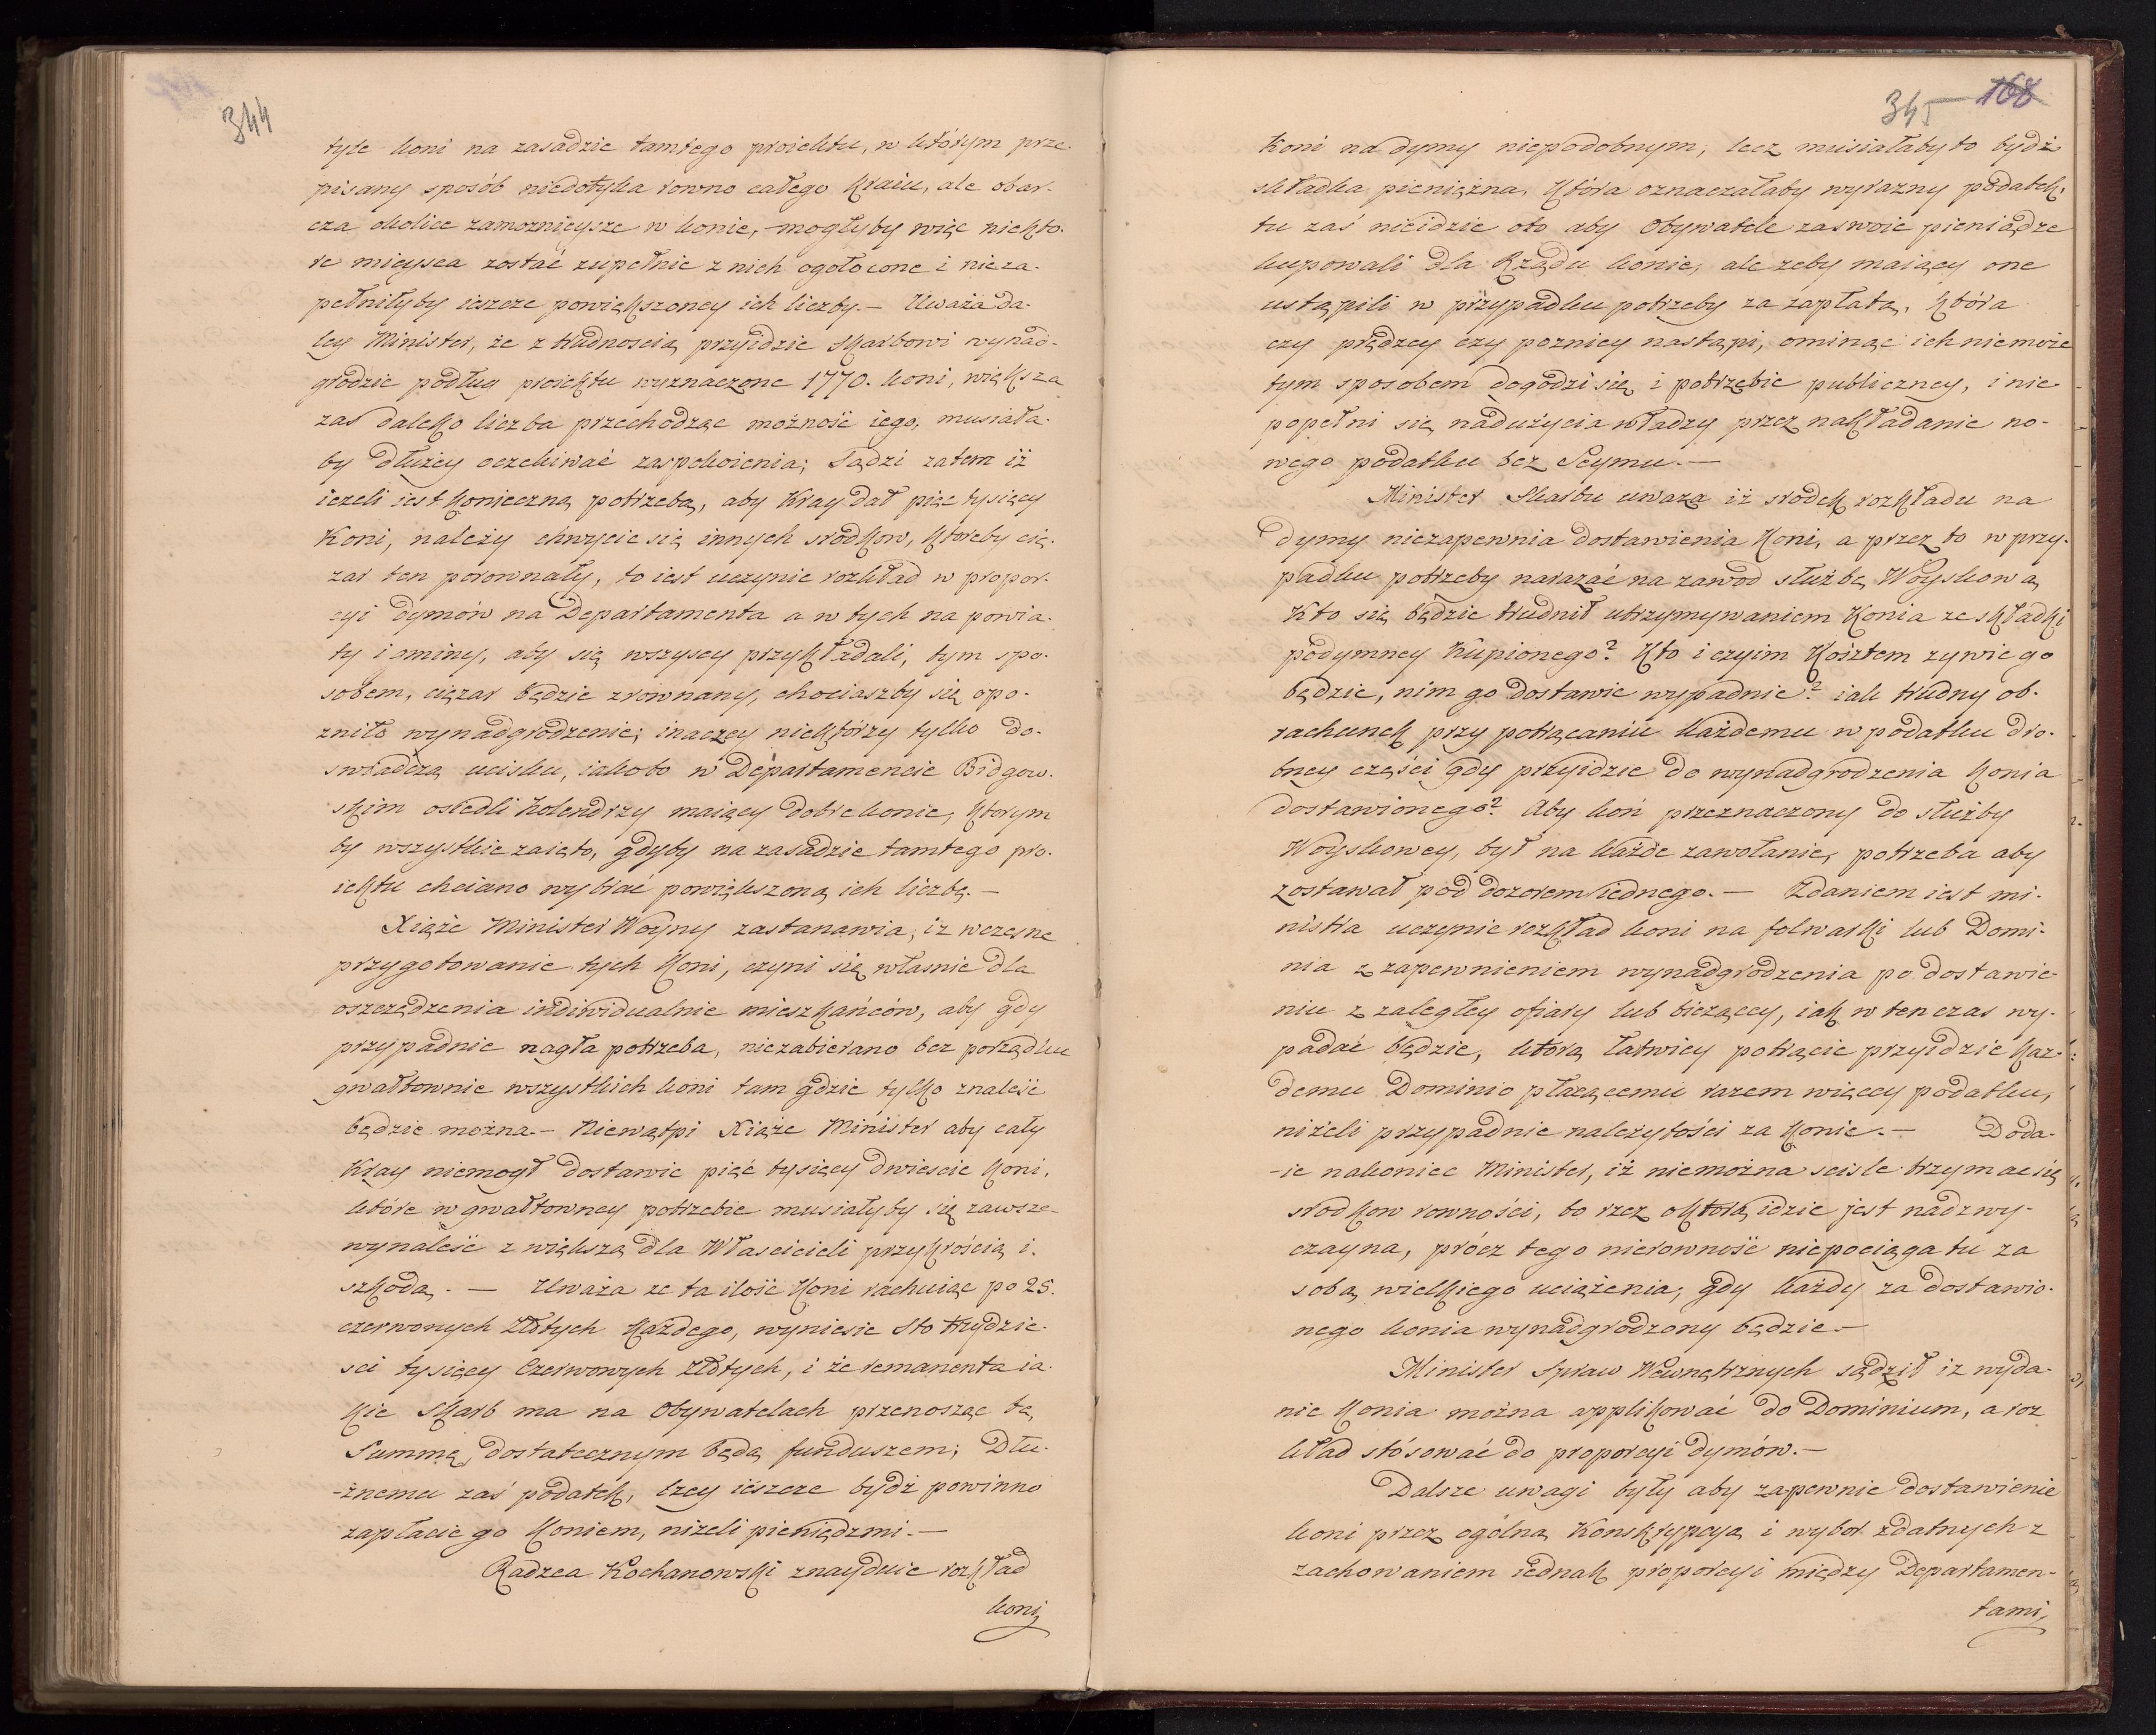 344
tyle koni na zasadzie tamtego proiektu, w którym prze-
pisany sposób niedotyka rowno całego Kraiu, ale obar-
cza okolice zamoznieysze w konie, mogłyby więc niekto-
re mieysca zostać zupełnie z nich ogołocone i nieza-
pełniłyby ieszcze powiększoney ich liczby.— Uważa da-
ley Minister, że z trudnoscią przyidzie Skarbowi wynad-
grodzie podług proiektu wyznaczone 1770. koni, większa
zas daleko liczba przechodząc możność iego, musiała-
by dłużey oczekiwać zaspokoienia; Sądzi zatem iż
iezeli iest konieczną potrzebą, aby Kray dał pięc tysięcy
Koni, należy chwycic się innych srodkow, któreby cię-
zar ten porownały, to iest uczynic rozkład w propor-
cyi dymów na Departamenta a w tych na powia-
ty i gminy, aby się wszyscy przykładali, tym spo-
sobem, ciężar będzie zrownany, chociaszby się opo-
zniło wynadgrodzenie; inaczey niektórzy tylko do-
swiadczą ucisku, iakoto w Departamencie Bidgow-
skim osiedli Holendrzy maiący dobre konie, ktorym
by wszystkie zaięto, gdyby na zasadzie tamtego pro-
iektu chciano wybrać powiększoną ich liczbę.—
Xiąże Minister Woyny zastanawia, iz wczesne
przygotowanie tych Koni, czyni się własnie dla
oszczędzenia indiwidualnie mieszkańców, aby gdy
przypadnie nagła potrzeba, niezabierano bez porządku
gwałtownie wszystkich koni tam gdzie tylko znaleść
będzie można.— Niewątpi Xiąże Minister aby cały
Kray niemogł dostawic pięć tysięcy dwiescie koni,
które w gwałtowney potrzebie musiałyby się zawsze
wynaleść z większą dla Włascicieli przykrością i
szkodą.— Uważa ze ta ilość Koni rachuiąc po 25.
czerwonych Złotych każdego, wyniesie sto trzydzie-
sci tysięcy Czerwonych Złotych, i że remanenta ia-
kie Skarb ma na Obywatelach przenosząc tę
Summę, dostatecznym będą funduszem; Dłu-
-żnemu zaś podatek, lzey ieszcze bydź powinno
zapłacic go Koniem, niżeli pieniędzmi.—
Radzca Kochanowski znayduie rozkład
koni
345 168
Koni na dymy niepodobnym, lecz musiałaby to bydź
składka pieniężna, która oznaczałaby wyrazny podatek,
tu zaś nieidzie oto aby Obywatele za swoie pieniądze
kupowali dla Rządu konie, ale zeby maiący one
ustąpili w przypadku potrzeby za zapłatą, która
czy prędzey czy pozniey nastąpi, ominąć ich niemoże
tym sposobem dogodzi się i potrzebie publiczney, i nie-
popełni się nadużycia władzy przez nakładanie no-
wego podatku bez Seymu.—
Minister Skarbu uwaza iż srodek rozkładu na
dymy niezapewnia dostawienia Koni, a przez to w przy-
padku potrzeby narazać na zawod służbę Woyskową
Kto się będzie trudnił utrzymywaniem Konia ze składki
podymney Kupionego? Kto i czyim Kosztem zywic go
będzie, nim go dostawic wypadnie? iak trudny ob-
rachunek przy potrącaniu każdemu w podatku dro-
bney części gdy przyidzie do wynadgrodzenia Konia
dostawionego? Aby koń przeznaczony do służby
Woyskowey, był na każde zawołanie, potrzeba aby
zostawał pod dozorem iednego.— Zdaniem iest mi-
nistra uczynic rozkład koni na folwarki lub Domi-
nia z zapewnieniem wynadgrodzenia po dostawie-
niu z zaległey ofiary lub bieżącey, iak w ten czas wy-
padać będzie, którą łatwiey potrącic przyidzie kaz-
demu Dominio płazącemu razem więcey podatku,
niżeli przypadnie należytości za konie.— Doda-
-ie nakoniec Minister, iż niemożna scisle trzymac się
srodkow rowności, bo rzez októrą idzie jest nadzwy-
czayna, prócz tego nierowność niepociąga tu za
sobą wielkiego uciążenia, gdy każdy za dostawio-
nego konia wynadgrodzony będzie.—
Minister Spraw Wewnętrznych sądził iz wyda-
nie Konia można applikować do Dominium, a roz
kład stósować do proporcyi dymów.—
Dalsze uwagi były aby zapewnic dostawienie
koni przez ogólną Konskrypcyą i wybor zdatnych z
zachowaniem iednak proporcyi między Departamen-
tami,